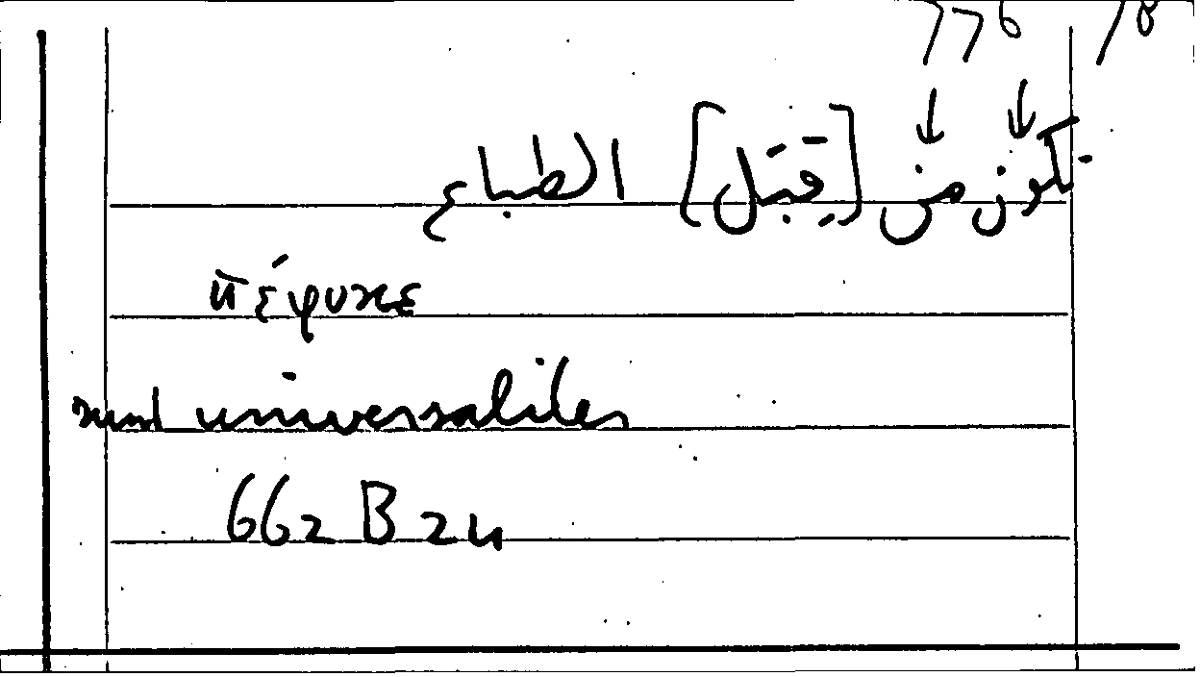 776 18
تكون من [قِبَل] الطباع
πέφυκε
sunt universaliter
662 B 24